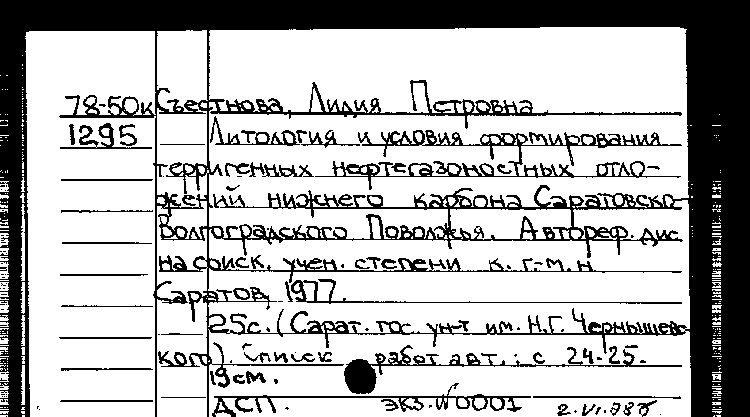 78-50к Съестнова, Лидия Петровна
1295 Литология и условия формирования
терригенных нефтегазоносных отло-
жений нижнего карбона Саратовско-
Волгоградского Поволжья. Автореф. дис.
на соиск. учен. степени к. г.-м. н
Саратов, 1977.
25с. (Сарат. гос. ун-т им. Н.Г. Чернышевс-
кого). Список работ авт.: с 24-25.
19см.
ДСП. экз. N0001